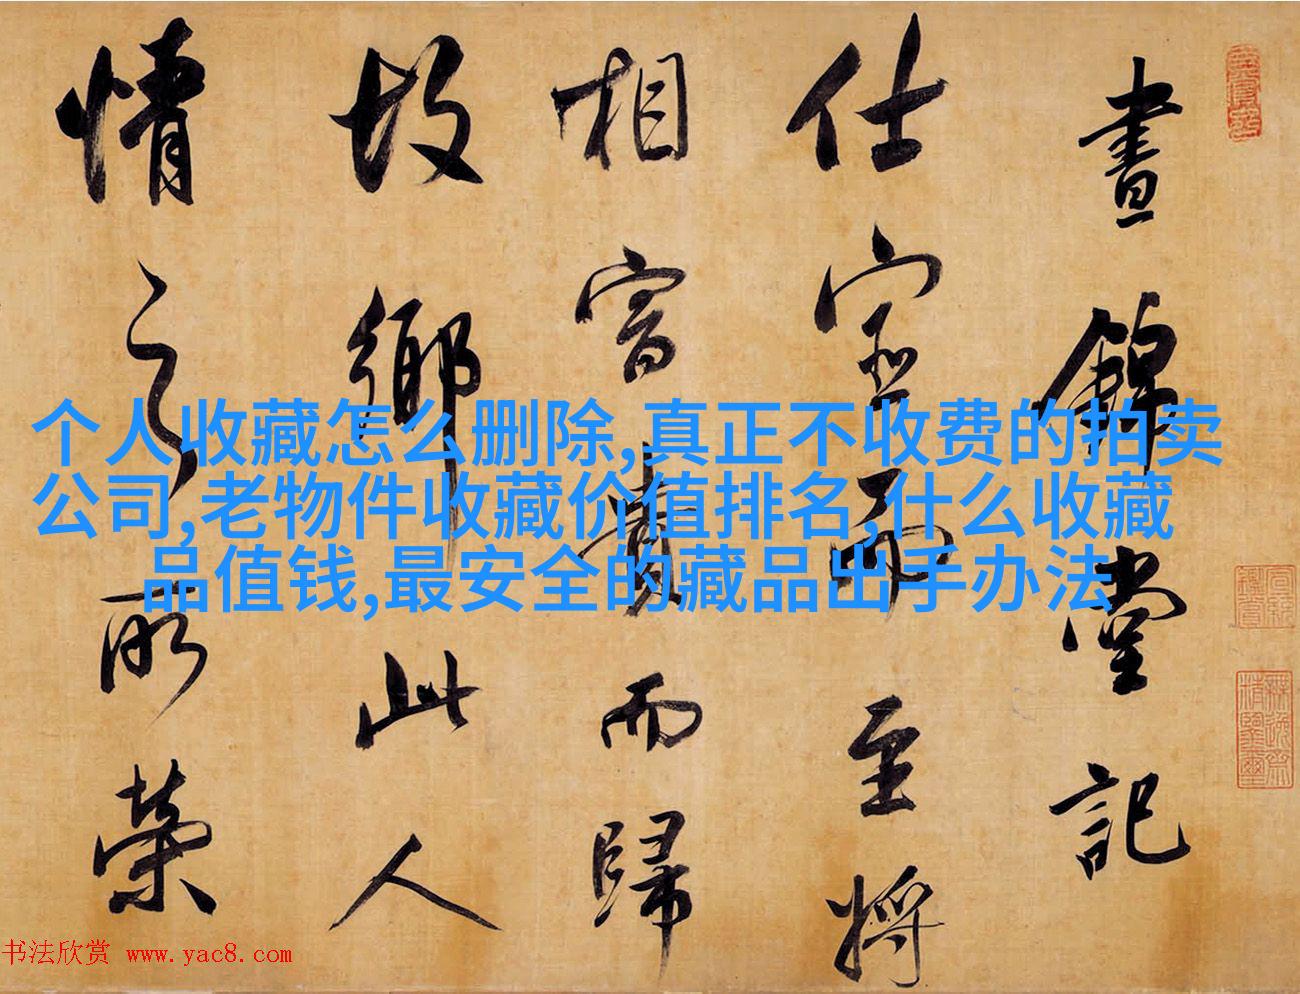 晝錦堂記
仕宦而至將
相富貴而歸
故鄉此人
情之所榮
个人收藏怎么删除,真正不收费的拍卖
公司,老物件收藏价值排名,什么收藏
品值钱,最安全的藏品出手办法
书法欣赏 www.yac8.com